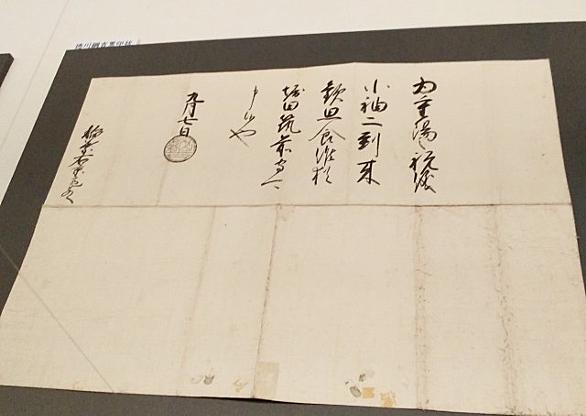 徳川綱吉黒印状
為重陽之祝儀
小袖二到来
歓思食候猶
堀田筑前守可
申候也
九月七日
稲葉